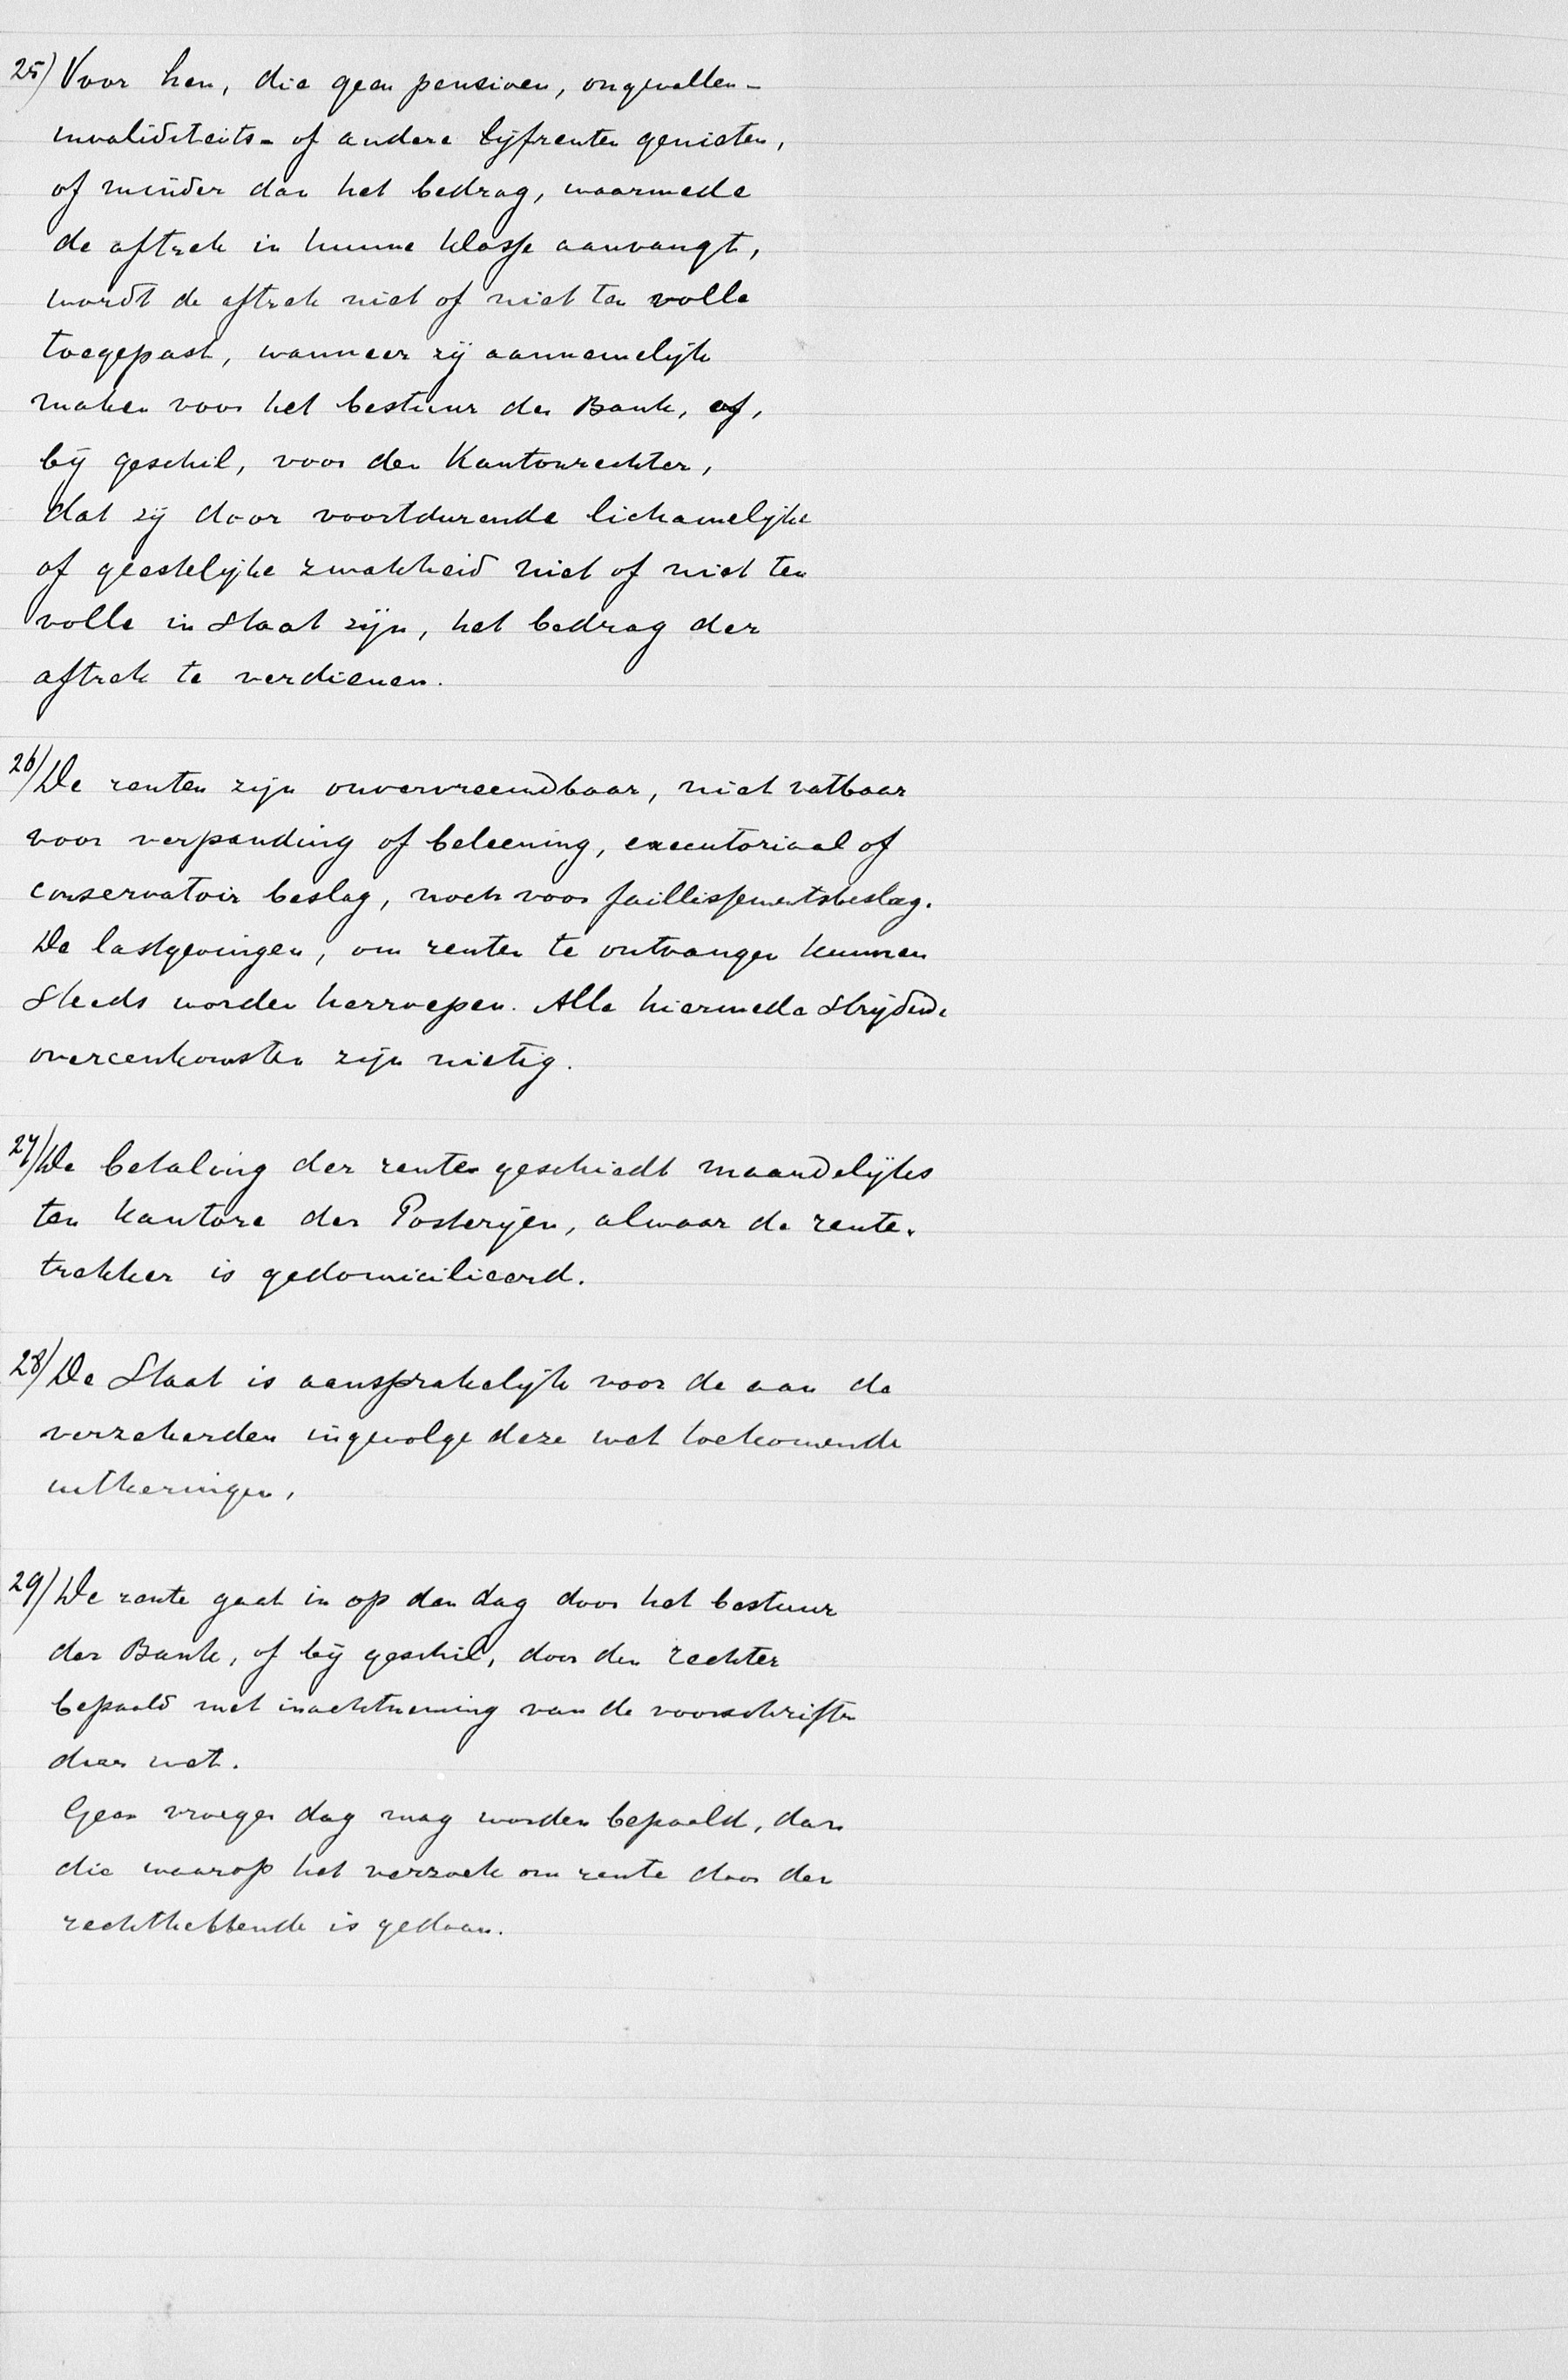 25) Voor hen, die geen pensioen, ongevallen-
invaliditeits- of andere lijfrenten genieten,
of minder dan het bedrag, waarmede
de aftrek in hunne klasse aanvangt,
wordt de aftrek niet of niet ten volle
toegepast, wanneer zij aannemelijk
maken voor het bestuur der Bank, of,
bij geschil, voor den Kantonrechter,
dat zij door voortdurende lichamelijke
of geestelijke zwakheid niet of niet ten
volle in staat zijn, het bedrag der
aftrek te verdienen.
26) De renten zijn onvervreemdbaar, niet vatbaar
voor verpanding of beleening, executoriaal of
conservatoir beslag, noch voor faillissementsbeslag.
De lastgevingen, om renten te ontvangen kunnen
steeds worden herroepen. Alle hiermede strijdende
overeenkomsten zijn nietig.
27) De betaling der renten geschiedt maandelijks
ten kantore der Posterijen, alwaar de rente-
trekker is gedomicilieerd.
28) De Staat is aansprakelijk voor de aan de
verzekerden ingevolge deze wet toekomende
uitkeringen.
29) De rente gaat in op den dag door het bestuur
der Bank, of bij geschil, door den rechter
bepaald met inachtneming van de voorschriften
dezer wet.
Geen vroeger dag mag worden bepaald, dan
die waarop het verzoek om rente door den
rechthebbende is gedaan.